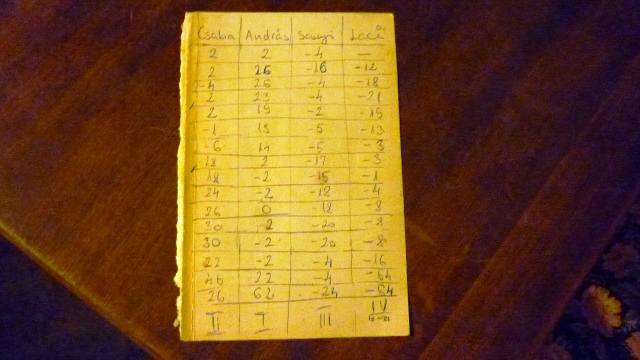 Csaba András Sanyi Laci
2 2 -4 —
2 26 -16 -12
-4 26 -4 -18
2 23 -4 -21
2 15 -2 -15
-1 19 -5 -13
-6 14 -5 -3
18 2 -17 -3
18 -2 -15 -1
24 -2 -18 -4
26 0 -18 -8
30 -2 -20 -8
30 -2 -20 -8
22 -2 -4 -16
46 22 -4 -64
26 62 -24 -64
II I III IV